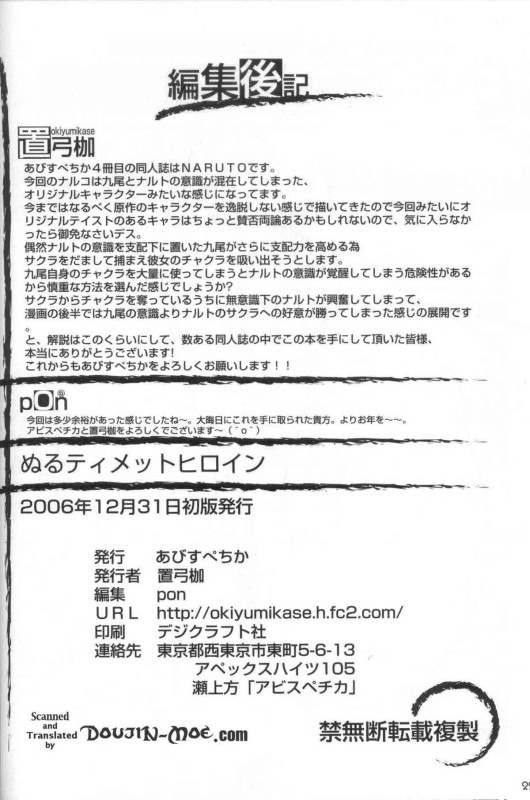 編集後記
okiyumikase
置弓枷
あびすぺちか4冊目の同人誌はNARUTOです。
今回のナルコは九尾とナルトの意識が混在してしまった、
オリジナルキャラクターみたいな感じになってます。
今まではなるべく原作のキャラクターを逸脱しない感じで描いてきたので今回みたいにオ
リジナルテイストのあるキャラはちょっと賛否両論あるかもしれないので、気に入らなか
ったら御免なさいデス。
偶然ナルトの意識を支配下に置いた九尾がさらに支配力を高める為
サクラをだまして捕まえ彼女のチャクラを吸い出そうとします。
九尾自身のチャクラを大量に使ってしまうとナルトの意識が覚醒してしまう危険性がある
から慎重な方法を選んだ感じでしょうか?
サクラからチャクラを奪っているうちに無意識下のナルトが興奮してしまって、
漫画の後半では九尾の意識よりナルトのサクラへの好意が勝ってしまった感じの展開です
。
と、解説はこのくらいにして、数ある同人誌の中でこの本を手にして頂いた皆様、
本当にありがとうございます!
これからもあびすぺちかをよろしくお願いします！！
pon
今回は多少余裕があった感じでしたね〜。大晦日にこれを手に取られた貴方。よりお年を〜〜。
アビスペチカと置弓枷をよろしくでございます〜（＾ｏ＾）
ぬるティメットヒロイン
2006年12月31日初版発行
発行 あびすぺちか
発行者 置弓枷
編集 pon
URL http://okiyumikase.h.fc2.com/
印刷 デジクラフト社
連絡先 東京都西東京市東町5-6-13
アペックスハイツ105
瀬上方「アビスペチカ」
Scanned
and
Translated
by
DOUJIN-MOE.com
禁無断転載複製